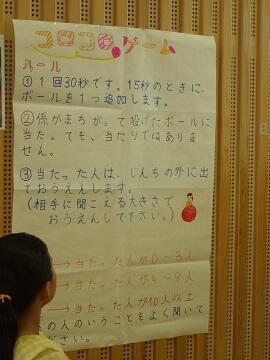 コロコロゲーム
ルール
①1回30秒です。15秒のときに、
ボールを1つ追加します。
②係がまちがって投げたボールに
当たっても、当たりではありま
せん。
③当たった人は、じんちの外に出
ておうえんします。
(相手に聞こえる大きさで
おうえんして下さい。)
→当たった人が0～3人
→当たった人が4～9人
→当たった人が10人以上
の人のいうことをよく聞いて